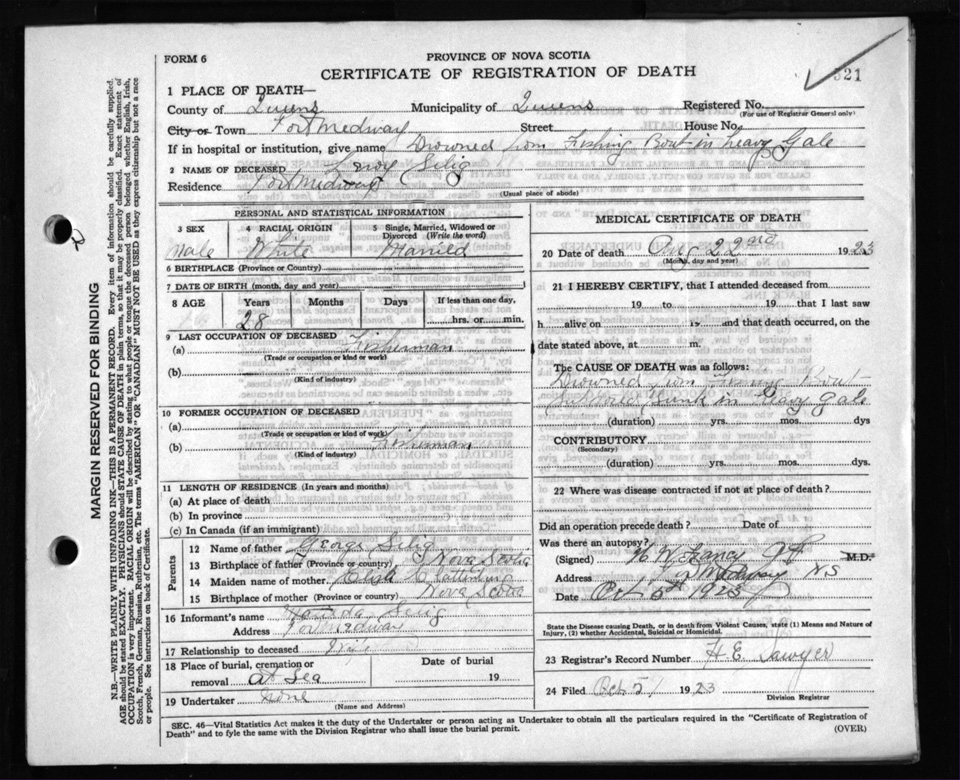 FORM 6
PROVINCE OF NOVA SCOTIA
CERTIFICATE OF REGISTRATION OF DEATH
521
1 PLACE OF DEATH—
County of Queens Municipality of Queens Registered No.
(For use of Registrar General only)
City or Town Port Medway Street House No.
If in hospital or institution, give name Drowned from Fishing Boat in heavy Gale
2 NAME OF DECEASED Selig
Residence Port Medway
(Usual place of abode)
PERSONAL AND STATISTICAL INFORMATION
3 SEX 4 RACIAL ORIGIN 5 Single, Married, Widowed or Divorced (Write the word)
Male White Married
6 BIRTHPLACE (Province or Country)
7 DATE OF BIRTH (month, day and year)
8 AGE Years Months Days If less than one day,
28 hrs. or min.
9 LAST OCCUPATION OF DECEASED
(a) Fisherman
(Trade or occupation or kind of work)
(b)
(Kind of industry)
10 FORMER OCCUPATION OF DECEASED
(a)
(Trade or occupation or kind of work)
(b) Fisherman
(Kind of industry)
11 LENGTH OF RESIDENCE (In years and months)
(a) At place of death
(b) In province
(c) In Canada (if an immigrant)
Parents
12 Name of father George Selig
13 Birthplace of father (Province or country) Nova Scotia
14 Maiden name of mother
15 Birthplace of mother (Province or country) Nova Scotia
16 Informant's name Selig
Address Port Medway
17 Relationship to deceased Wife
18 Place of burial, cremation or removal At Sea Date of burial 19
19 Undertaker None
(Name and Address)
MEDICAL CERTIFICATE OF DEATH
20 Date of death Aug 22nd 1923
(Month, day and year)
21 I HEREBY CERTIFY, that I attended deceased from
19 to 19 that I last saw
h alive on 19 and that death occurred, on the
date stated above, at m.
The CAUSE OF DEATH was as follows:
Drowned from Fishing Boat
Sunk in Heavy Gale
(duration) yrs. mos. dys
CONTRIBUTORY
(Secondary)
(duration) yrs. mos. dys.
22 Where was disease contracted if not at place of death?
Did an operation precede death? Date of
Was there an autopsy?
(Signed) M.D.
Address Medway NS
Date Oct 5th 1923
State the Disease causing Death, or in death from Violent Causes, state (1) Means and Nature of Injury, (2) whether Accidental, Suicidal or Homicidal.
23 Registrar's Record Number H E Sawyer
24 Filed Oct 5 1923
Division Registrar
SEC. 46—Vital Statistics Act makes it the duty of the Undertaker or person acting as Undertaker to obtain all the particulars required in the "Certificate of Registration of
Death" and to fyle the same with the Division Registrar who shall issue the burial permit.
(OVER)
MARGIN RESERVED FOR BINDING
N.B.—WRITE PLAINLY WITH UNFADING INK—THIS IS A PERMANENT RECORD. Every item of information should be carefully supplied.
AGE should be stated EXACTLY. PHYSICIANS should STATE CAUSE OF DEATH in plain terms, so that it may be properly classified. Exact statement of
OCCUPATION is very important. RACIAL ORIGIN will be described by stating to what people or tongue the deceased person belonged whether English, Irish,
Scotch, French, German, Russian, Ruthenian, etc. The terms "AMERICAN" OR "CANADIAN" MUST NOT BE USED as they express citizenship but not a race
or people. See instructions on back of Certificate.